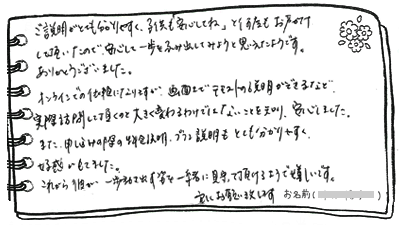 ご説明がとても分かりやすく、子供も「安心してね」と何度もお声がけ
して頂いたので、安心して一歩をふみ出してみようと思えたようです。
ありがとうございました。
オンラインでの依頼になりますが、画面上でテキストの説明ができるなど、
実際訪問して頂くのと大きく変わるわけでもないことを知り、安心しました。
また、申し込みの際の料金説明、プラン説明もとても分かりやすく、
好感がもてました。
これから娘が一歩ふみ出す姿を一緒に見守って頂けるようで嬉しいです。
宜しくお願い致します お名前(